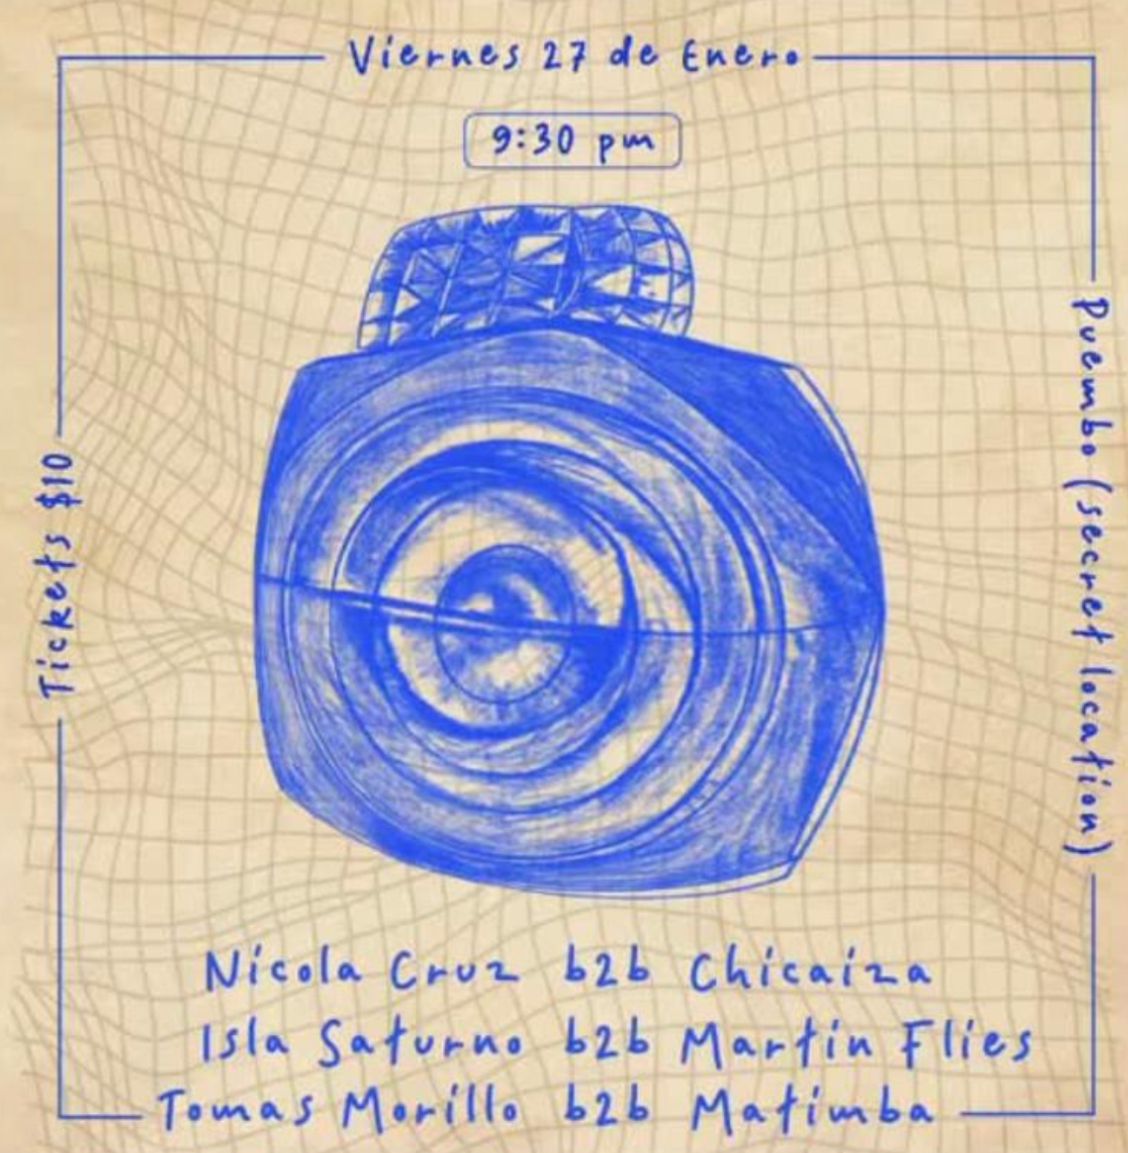 Viernes 27 de Enero
9:30 pm
Tickets $10
Puembo (secret location)
Nicola Cruz b2b Chicaiza
Isla Saturno b2b Martin Flies
Tomas Morillo b2b Matimba